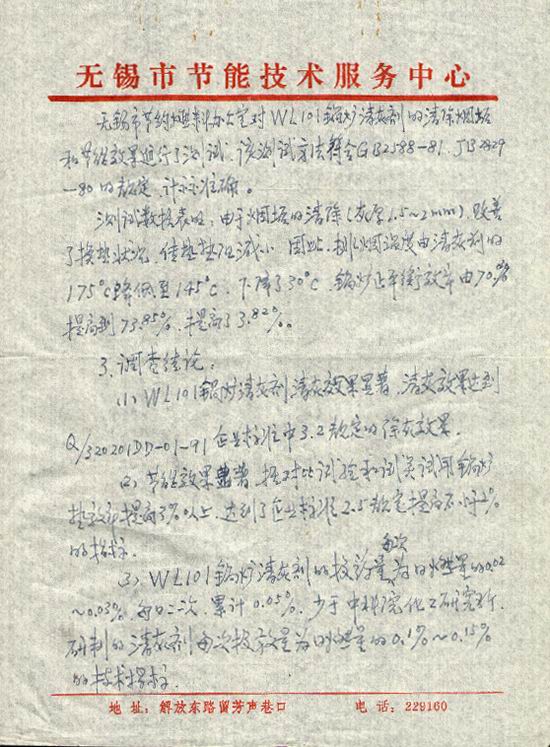 无锡市节能技术服务中心
无锡市节约燃料办公室对WL101锅炉清灰剂的清除烟垢
和节能效果进行了测试，该测试方法符合GB2588-81、JB2829
-80的规定，计标准确。
测试数据表明，由于烟垢的清除(灰厚1.5~2mm)，改善
了换热状况，传热热阻减小，因此，排烟温度由清灰剂的
175°C降低至145°C，下降了30°C，锅炉正平衡效率由70.
提高到73.85%，提高了3.82%。
3.调查结论：
(1) WL101锅炉清灰剂清灰效果显著，清灰效果达到
Q/320201DD-01-91企业标准中3.2规定的除灰效果。
(2) 节能效果显著，经对比试验和试美试用锅炉
热效率提高3%以上，达到了企业标准2.5规定提高不小于2%
的指标。
每次
(3) WL101锅炉清灰剂的投药量为日燃量的0.02
~0.03%，每日二次，累计0.05%，少于中科院化工研究所
研制的清灰剂每次投药量为日燃量的0.1%~0.15%
的技术指标。
地址：解放东路留芳声巷口 电话：229160